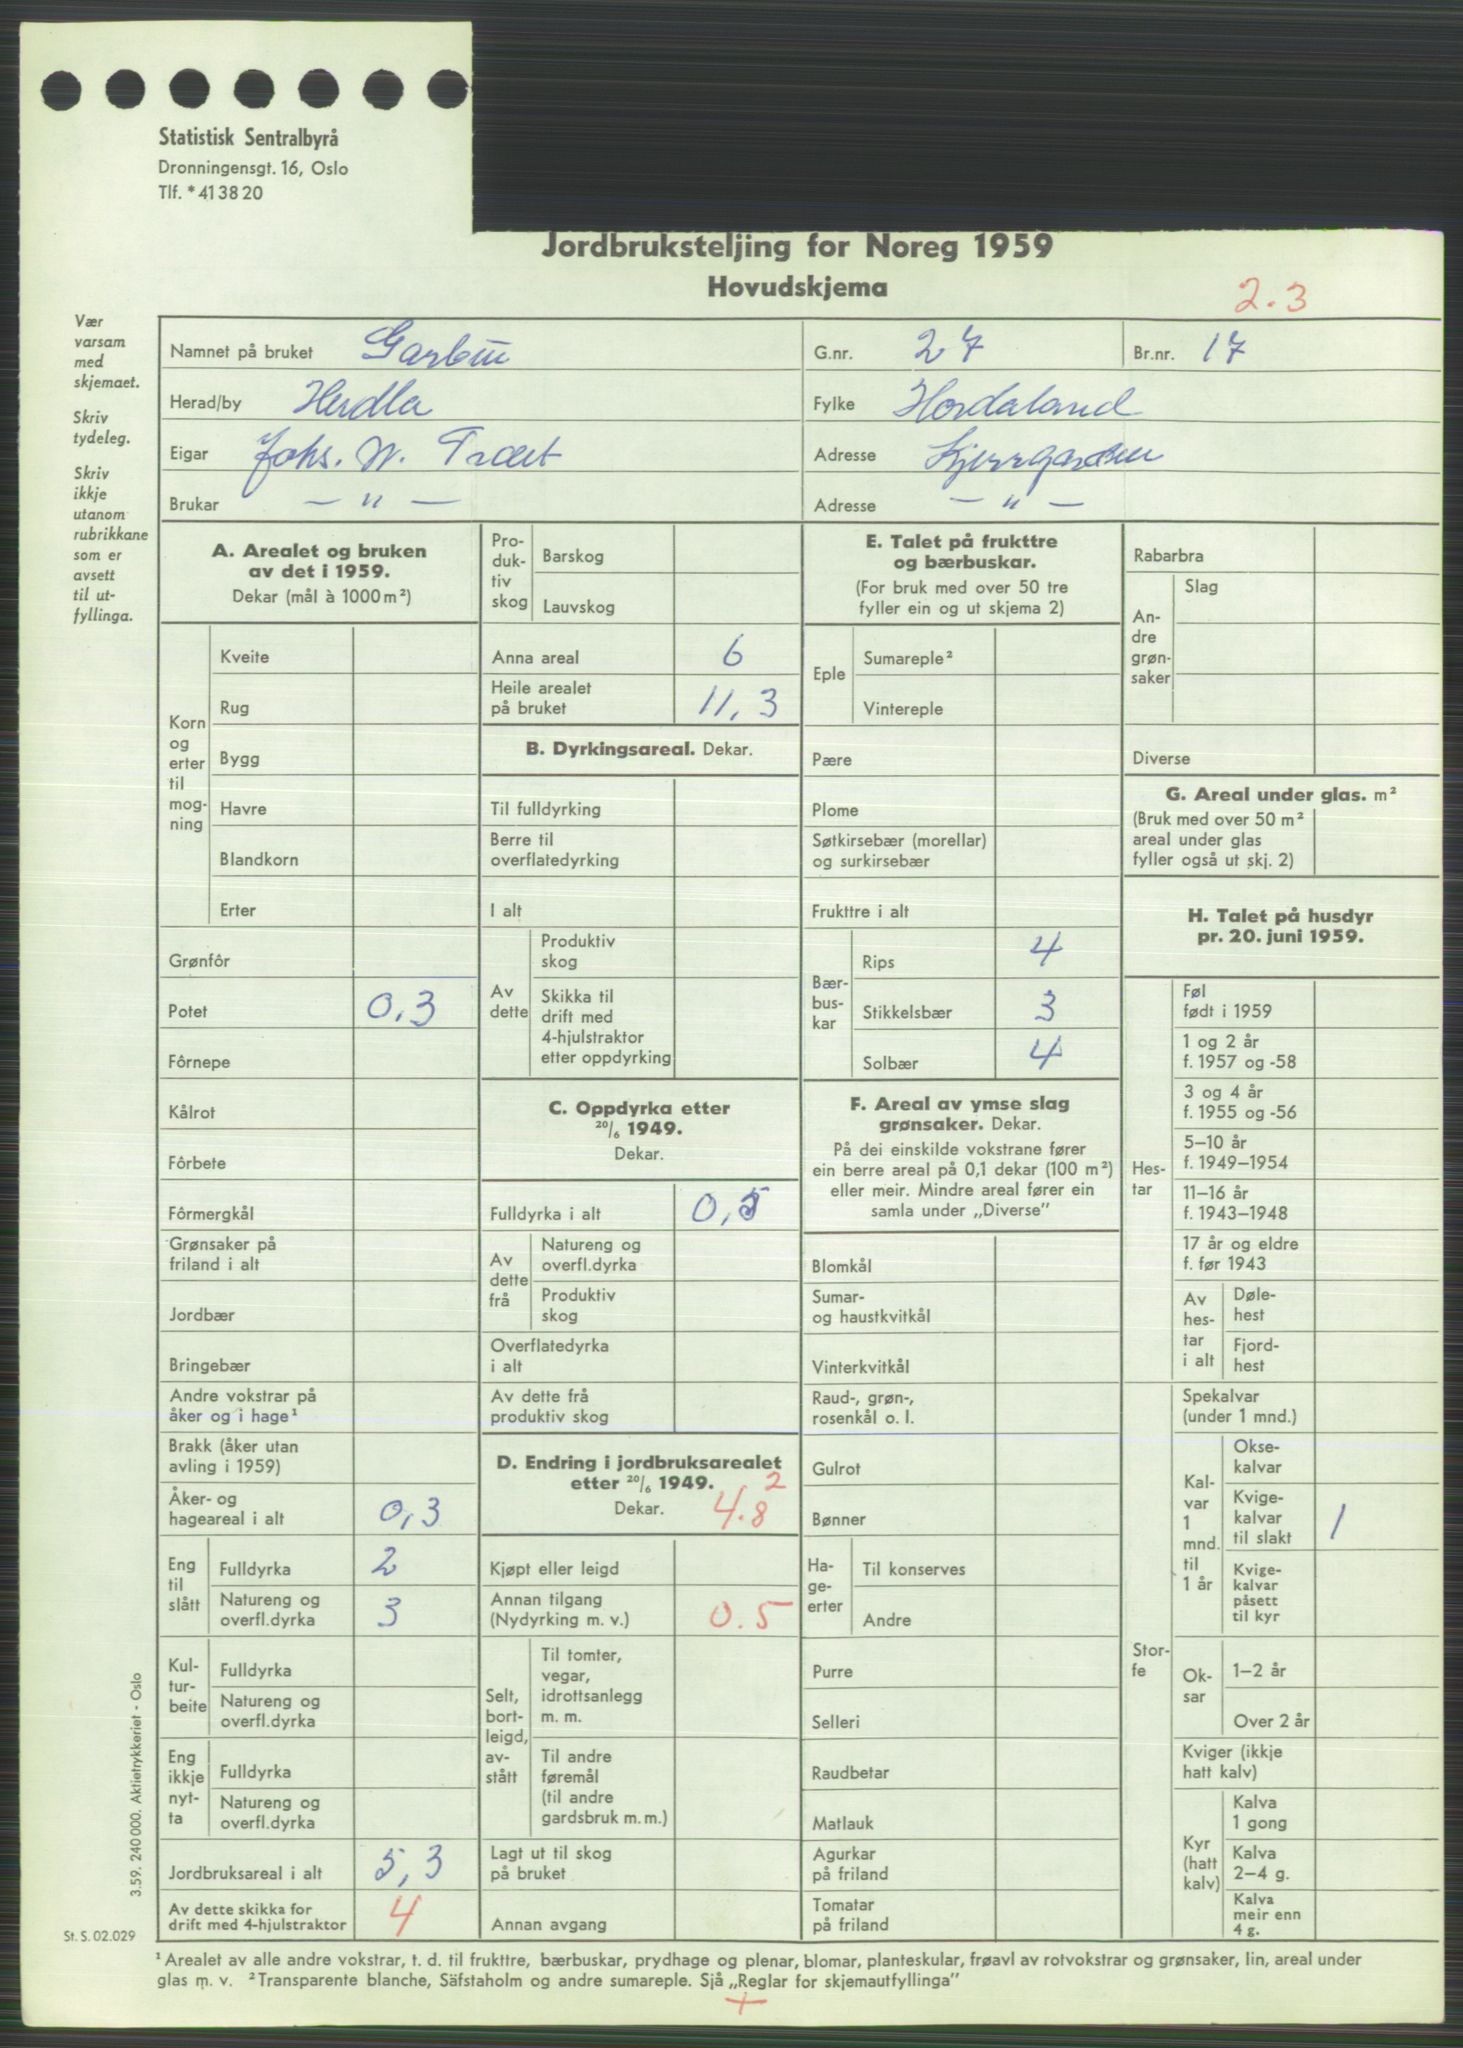 Statistisk Sentralbyrå
Dronningensgt. 16, Oslo
Tlf. *41 38 20
Jordbruksteljing for Noreg 1959
Hovudskjema
2.3
Vær
varsam
med
skjemaet.
Skriv
tydeleg.
Skriv
ikkje
utanom
rubrikkane
som er
avsett
til ut-
fyllinga.
Namnet på bruket
G.nr. 27 Br.nr. 17
Herad/by Herdla Fylke Hordaland
Eigar Johs. W. Træet Adresse
Brukar — " — Adresse — " —
A. Arealet og bruken
av det i 1959.
Dekar (mål à 1000 m²)
Korn
og
erter
til
mog-
ning
Kveite
Rug
Bygg
Havre
Blandkorn
Erter
Grønfôr
Potet 0,3
Fôrnepe
Kålrot
Fôrbete
Fôrmergkål
Grønsaker på
friland i alt
Jordbær
Bringebær
Andre vokstrar på
åker og i hage¹
Brakk (åker utan
avling i 1959)
Åker- og
hageareal i alt 0,3
Eng
til
slått
Fulldyrka 2
Natureng og
overfl.dyrka 3
Kul-
tur-
beite
Fulldyrka
Natureng og
overfl.dyrka
Eng
ikkje
nyt-
ta
Fulldyrka
Natureng og
overfl.dyrka
Jordbruksareal i alt 5,3
Av dette skikka for
drift med 4-hjulstraktor 4
Pro-
duk-
tiv
skog
Barskog
Lauvskog
Anna areal 6
Heile arealet
på bruket 11,3
B. Dyrkingsareal. Dekar.
Til fulldyrking
Berre til
overflatedyrking
I alt
Av
dette
Produktiv
skog
Skikka til
drift med
4-hjulstraktor
etter oppdyrking
C. Oppdyrka etter
20/6 1949.
Dekar.
Fulldyrka i alt 0,5
Av
dette
frå
Natureng og
overfl.dyrka
Produktiv
skog
Overflatedyrka
i alt
Av dette frå
produktiv skog
D. Endring i jordbruksarealet
etter 20/6 1949. 2
Dekar. 4.8
Kjøpt eller leigd
Annan tilgang
(Nydyrking m. v.) 0.5
Selt,
bort-
leigd,
av-
stått
Til tomter,
vegar,
idrottsanlegg
m. m.
Til andre
føremål
(til andre
gardsbruk m.m.)
Lagt ut til skog
på bruket
Annan avgang
E. Talet på frukttre
og bærbuskar.
(For bruk med over 50 tre
fyller ein og ut skjema 2)
Eple
Sumareple²
Vintereple
Pære
Plome
Søtkirsebær (morellar)
og surkirsebær
Frukttre i alt
Bær-
bus-
kar
Rips 4
Stikkelsbær 3
Solbær 4
F. Areal av ymse slag
grønsaker. Dekar.
På dei einskilde vokstrane fører
ein berre areal på 0,1 dekar (100 m²)
eller meir. Mindre areal fører ein
samla under „Diverse”
Blomkål
Sumar-
og haustkvitkål
Vinterkvitkål
Raud-, grøn-,
rosenkål o. l.
Gulrot
Bønner
Ha-
ge-
erter
Til konserves
Andre
Purre
Selleri
Raudbetar
Matlauk
Agurkar
på friland
Tomatar
på friland
Rabarbra
An-
dre
grøn-
saker
Slag
Diverse
G. Areal under glas. m²
(Bruk med over 50 m²
areal under glas
fyller også ut skj. 2)
H. Talet på husdyr
pr. 20. juni 1959.
Hes-
tar
Føl
født i 1959
1 og 2 år
f. 1957 og -58
3 og 4 år
f. 1955 og -56
5–10 år
f. 1949–1954
11–16 år
f. 1943–1948
17 år og eldre
f. før 1943
Av
hes-
tar
i alt
Døle-
hest
Fjord-
hest
Stor-
fe
Spekalvar
(under 1 mnd.)
Kal-
var
1
mnd.
til
1 år
Okse-
kalvar
Kvige-
kalvar
til slakt 1
Kvige-
kalvar
påsett
til kyr
Ok-
sar
1–2 år
Over 2 år
Kviger (ikkje
hatt kalv)
Kyr
(hatt
kalv)
Kalva
1 gong
Kalva
2–4 g.
Kalva
meir enn
4 g.
3.59. 240 000. Aktietrykkeriet - Oslo
St. S. 02.029
¹ Arealet av alle andre vokstrar, t. d. til frukttre, bærbuskar, prydhage og plenar, blomar, planteskular, frøavl av rotvokstrar og grønsaker, lin, areal under
glas m. v. ² Transparente blanche, Säfstaholm og andre sumareple. Sjå „Reglar for skjemautfyllinga”
+